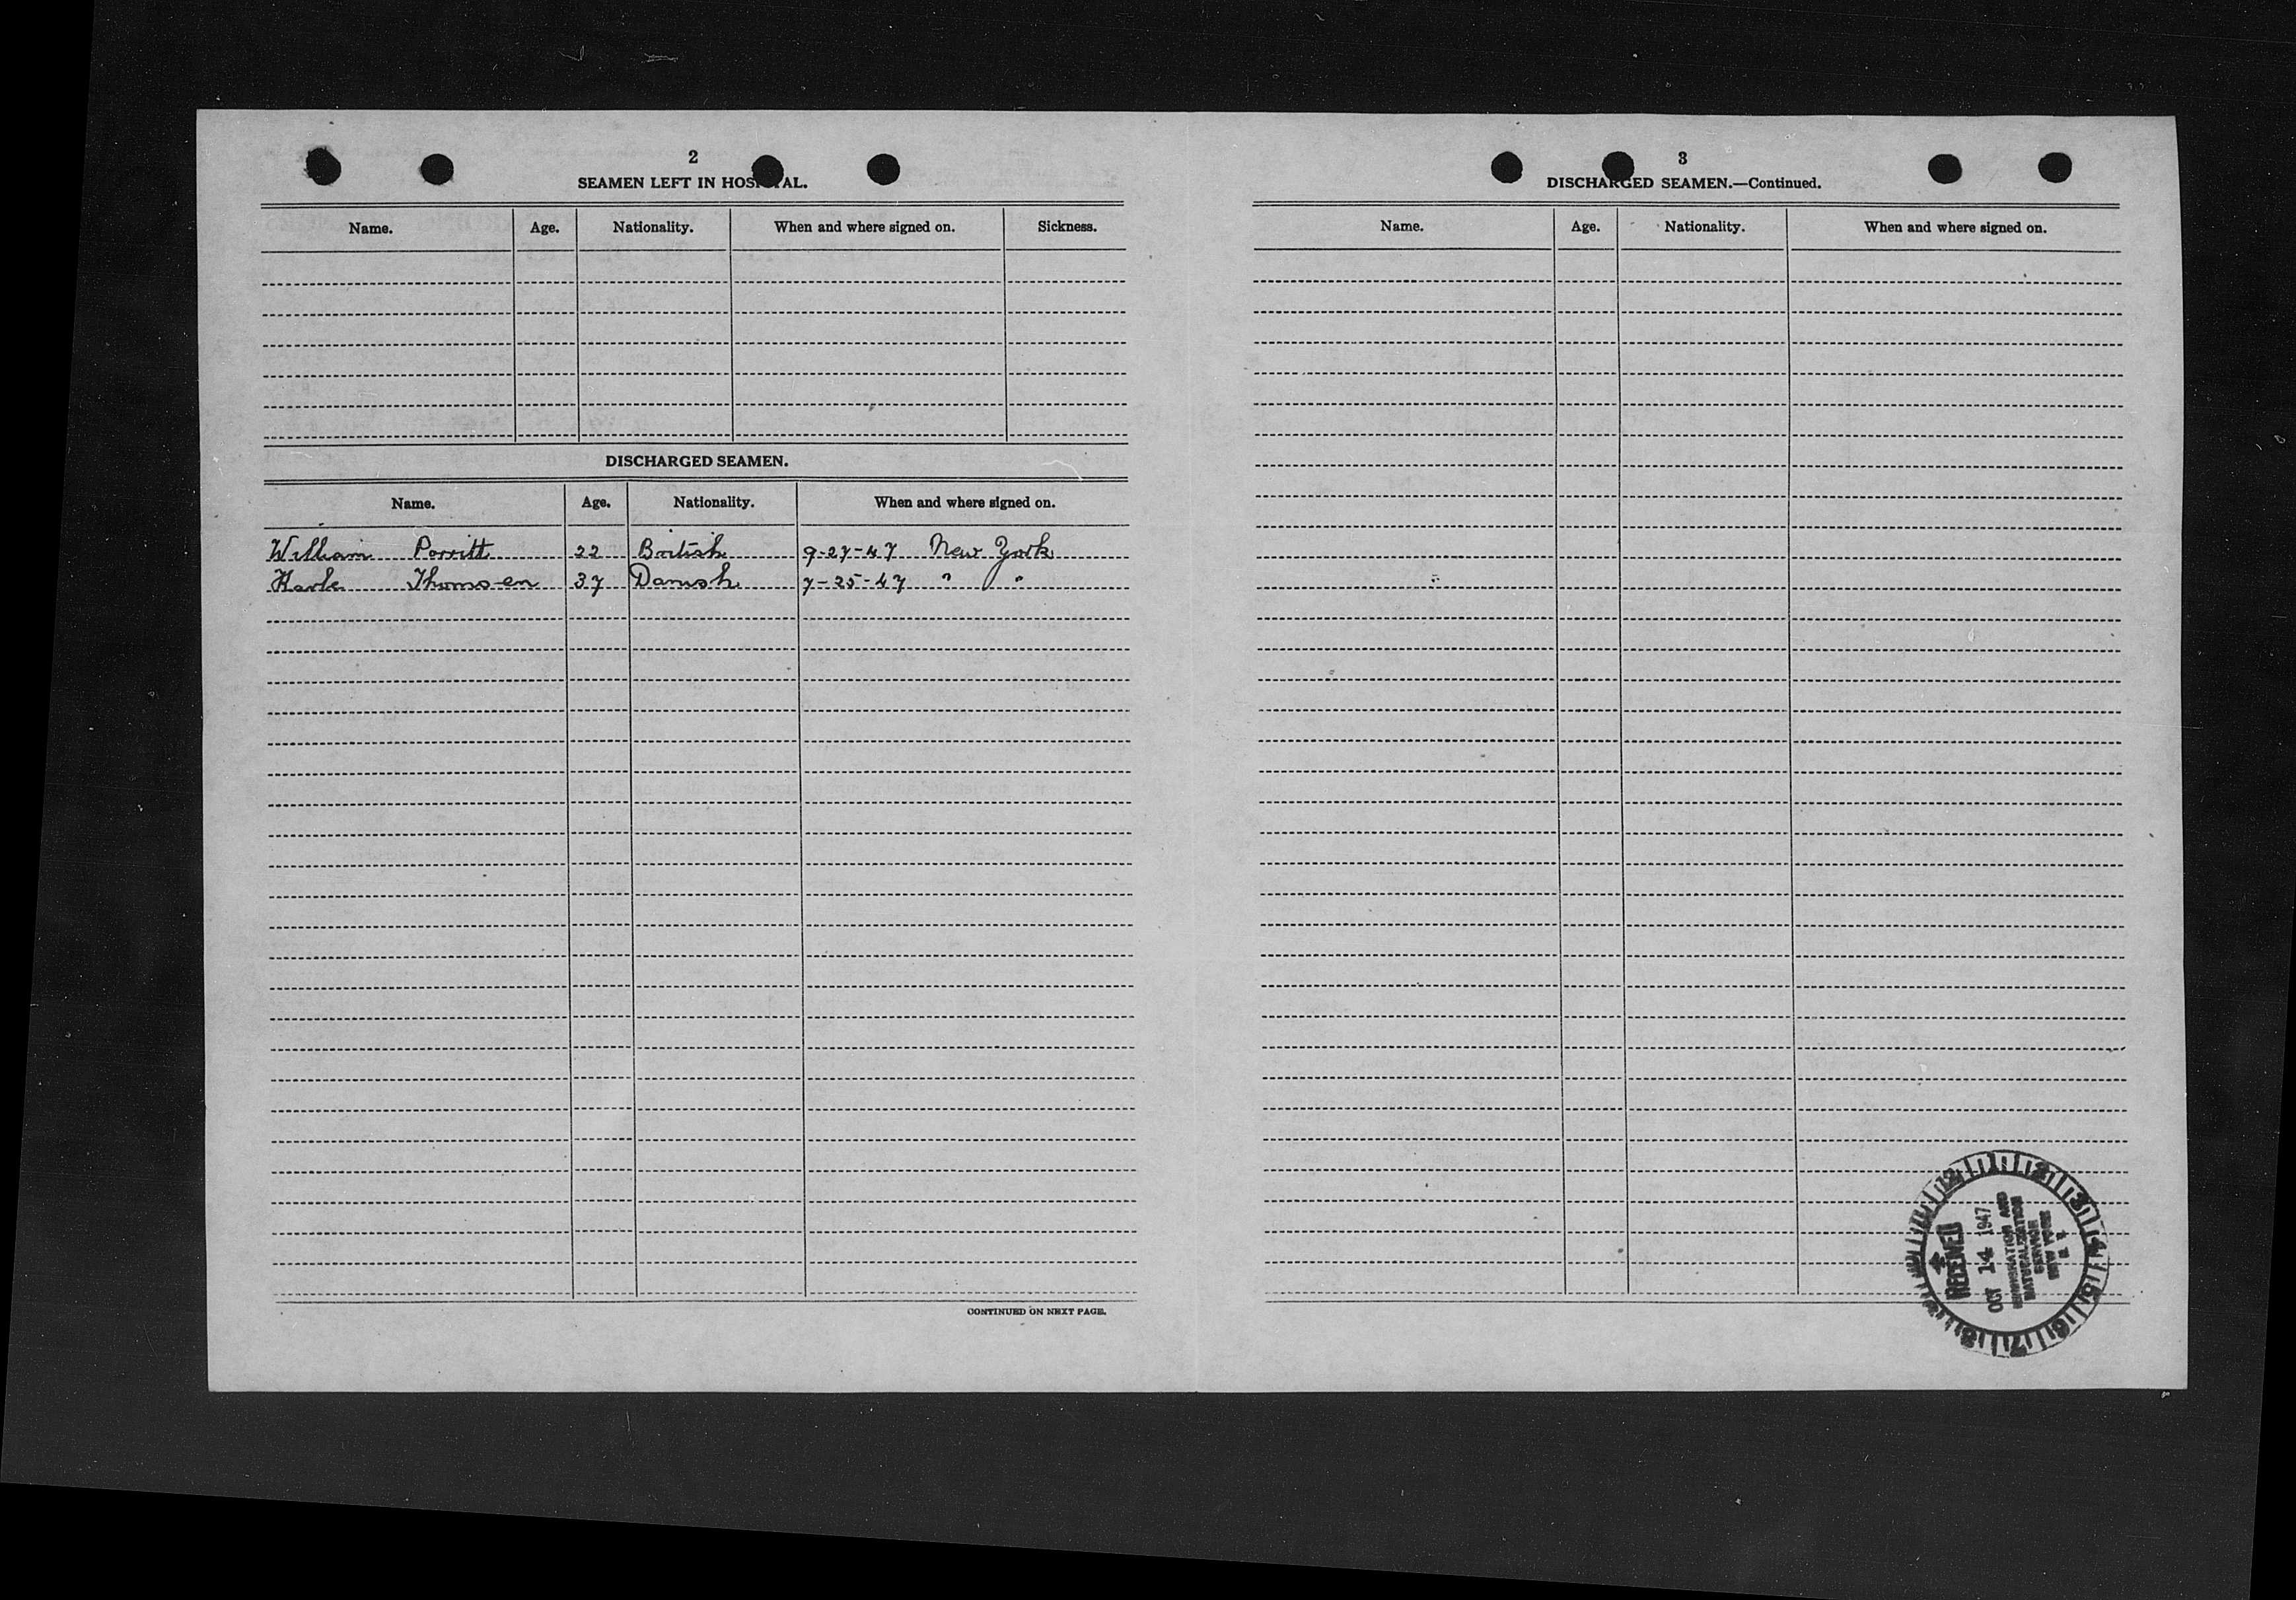 2
SEAMEN LEFT IN HOSPITAL.
Name. Age. Nationality. When and where signed on. Sickness.
DISCHARGED SEAMEN.
Name. Age. Nationality. When and where signed on.
William Porritt 22 British 9-27-47 New York
Thomsen 37 Danish 7-25-47 " "
CONTINUED ON NEXT PAGE.
3
DISCHARGED SEAMEN.—Continued.
Name. Age. Nationality. When and where signed on.
RECEIVED
OCT 14 1947
IMMIGRATION AND
NATURALIZATION
SERVICE
NEW YORK
N. Y.